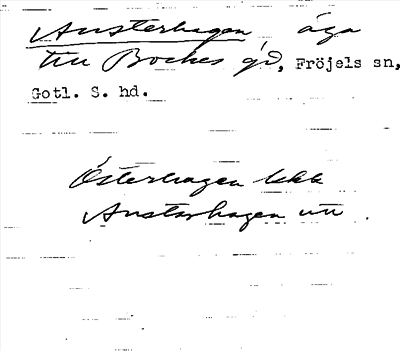 Austerhagen äga
till Bockes gd, Fröjels sn,
Gotl. S. hd.
Österhagen lekk
Austarhagen utt.